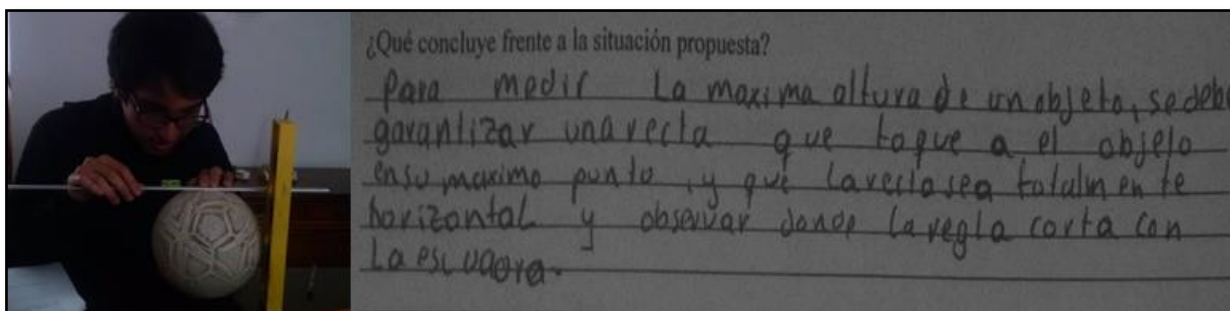 ¿Qué concluye frente a la situación propuesta?
Para medir La maxima altura de un objeto, se debe
garantizar una recta que toque a el objeto
en su maximo punto, y que la recta sea totalmente
horizontal y observar donde la regla corta con
La escuadra.